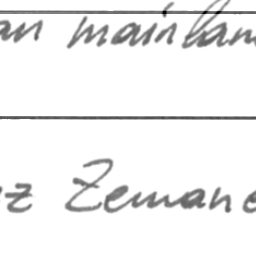 an mainlan
z Zemane